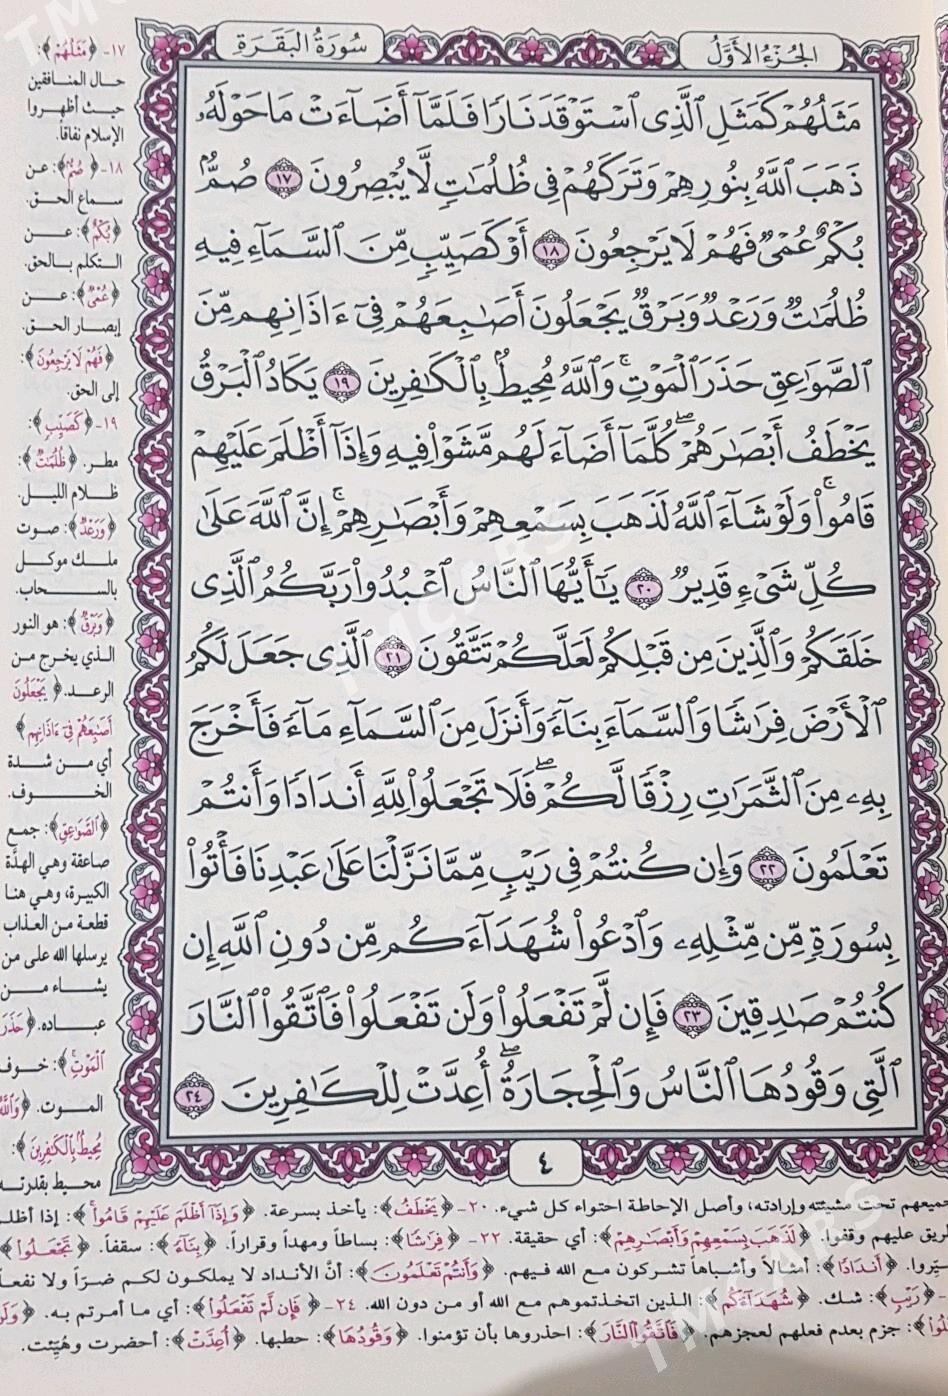 الجُزءُ الأَوَّلُ
سُورَةُ البَقَرَةِ
مَثَلُهُمْ كَمَثَلِ ٱلَّذِى ٱسْتَوْقَدَ نَارًا فَلَمَّآ أَضَآءَتْ مَا حَوْلَهُۥ
ذَهَبَ ٱللَّهُ بِنُورِهِمْ وَتَرَكَهُمْ فِى ظُلُمَٰتٍ لَّا يُبْصِرُونَ ١٧ صُمٌّۢ
بُكْمٌ عُمْىٌ فَهُمْ لَا يَرْجِعُونَ ١٨ أَوْ كَصَيِّبٍ مِّنَ ٱلسَّمَآءِ فِيهِ
ظُلُمَٰتٌ وَرَعْدٌ وَبَرْقٌ يَجْعَلُونَ أَصَٰبِعَهُمْ فِىٓ ءَاذَانِهِم مِّنَ
ٱلصَّوَٰعِقِ حَذَرَ ٱلْمَوْتِ ۚ وَٱللَّهُ مُحِيطٌۢ بِٱلْكَٰفِرِينَ ١٩ يَكَادُ ٱلْبَرْقُ
يَخْطَفُ أَبْصَٰرَهُمْ ۖ كُلَّمَآ أَضَآءَ لَهُم مَّشَوْا۟ فِيهِ وَإِذَآ أَظْلَمَ عَلَيْهِمْ
قَامُوا۟ ۚ وَلَوْ شَآءَ ٱللَّهُ لَذَهَبَ بِسَمْعِهِمْ وَأَبْصَٰرِهِمْ ۚ إِنَّ ٱللَّهَ عَلَىٰ
كُلِّ شَىْءٍ قَدِيرٌ ٢٠ يَٰٓأَيُّهَا ٱلنَّاسُ ٱعْبُدُوا۟ رَبَّكُمُ ٱلَّذِى
خَلَقَكُمْ وَٱلَّذِينَ مِن قَبْلِكُمْ لَعَلَّكُمْ تَتَّقُونَ ٢١ ٱلَّذِى جَعَلَ لَكُمُ
ٱلْأَرْضَ فِرَٰشًا وَٱلسَّمَآءَ بِنَآءً وَأَنزَلَ مِنَ ٱلسَّمَآءِ مَآءً فَأَخْرَجَ
بِهِۦ مِنَ ٱلثَّمَرَٰتِ رِزْقًا لَّكُمْ ۖ فَلَا تَجْعَلُوا۟ لِلَّهِ أَندَادًا وَأَنتُمْ
تَعْلَمُونَ ٢٢ وَإِن كُنتُمْ فِى رَيْبٍ مِّمَّا نَزَّلْنَا عَلَىٰ عَبْدِنَا فَأْتُوا۟
بِسُورَةٍ مِّن مِّثْلِهِۦ وَٱدْعُوا۟ شُهَدَآءَكُم مِّن دُونِ ٱللَّهِ إِن
كُنتُمْ صَٰدِقِينَ ٢٣ فَإِن لَّمْ تَفْعَلُوا۟ وَلَن تَفْعَلُوا۟ فَٱتَّقُوا۟ ٱلنَّارَ
ٱلَّتِى وَقُودُهَا ٱلنَّاسُ وَٱلْحِجَارَةُ ۖ أُعِدَّتْ لِلْكَٰفِرِينَ ٢٤
٤
١٧- ﴿مَثَلُهُمْ﴾:
حال المنافقين
حيث أظهروا
الإسلام نفاقاً.
١٨- ﴿صُمٌّ﴾: عن
سماع الحق.
﴿بُكْمٌ﴾: عن
التكلم بالحق.
﴿عُمْىٌ﴾: عن
إبصار الحق.
﴿فَهُمْ لَا يَرْجِعُونَ﴾:
إلى الحق.
١٩- ﴿كَصَيِّبٍ﴾:
مطر. ﴿ظُلُمَٰتٌ﴾:
ظلام الليل.
﴿وَرَعْدٌ﴾: صوت
ملك موكل
بالسحاب.
﴿وَبَرْقٌ﴾: هو النور
الذي يخرج من
الرعد. ﴿يَجْعَلُونَ
أَصَٰبِعَهُمْ فِىٓ ءَاذَانِهِم﴾
أي من شدة
الخوف.
﴿ٱلصَّوَٰعِقِ﴾: جمع
صاعقة وهي الهدَّة
الكبيرة، وهي هنا
قطعة من العذاب
يرسلها الله على من
يشاء من
عباده. ﴿حَذَرَ
ٱلْمَوْتِ﴾: خوف
الموت. ﴿وَٱللَّهُ
مُحِيطٌۢ بِٱلْكَٰفِرِينَ﴾:
محيط بقدرته
جميعهم تحت مشيئته وإرادته، وأصل الإحاطة احتواء كل شيء. ٢٠- ﴿يَخْطَفُ﴾: يأخذ بسرعة. ﴿وَإِذَآ أَظْلَمَ عَلَيْهِمْ قَامُوا۟﴾: إذا أظلم
عليهم وقفوا. ﴿لَذَهَبَ بِسَمْعِهِمْ وَأَبْصَٰرِهِمْ﴾: أي حقيقة. ٢٢- ﴿فِرَٰشًا﴾: بساطاً ومهداً وقراراً. ﴿بِنَآءً﴾: سقفاً. ﴿تَجْعَلُوا۟﴾
﴿أَندَادًا﴾: أمثالاً وأشباهاً تشركون مع الله فيهم. ﴿وَأَنتُمْ تَعْلَمُونَ﴾: أنَّ الأنداد لا يملكون لكم ضرّاً ولا نفعاً
﴿رَيْبٍ﴾: شك. ﴿شُهَدَآءَكُم﴾: الذين اتخذتموهم مع الله أو من دون الله. ٢٤- ﴿فَإِن لَّمْ تَفْعَلُوا۟﴾: أي ما أمرتم به. ﴿وَلَن
جزم بعدم فعلهم لعجزهم. ﴿فَٱتَّقُوا۟ ٱلنَّارَ﴾: احذروها بأن تؤمنوا. ﴿وَقُودُهَا﴾: حطبها. ﴿أُعِدَّتْ﴾: أحضرت وهُيِّئت.
TMCARS
TMCARS